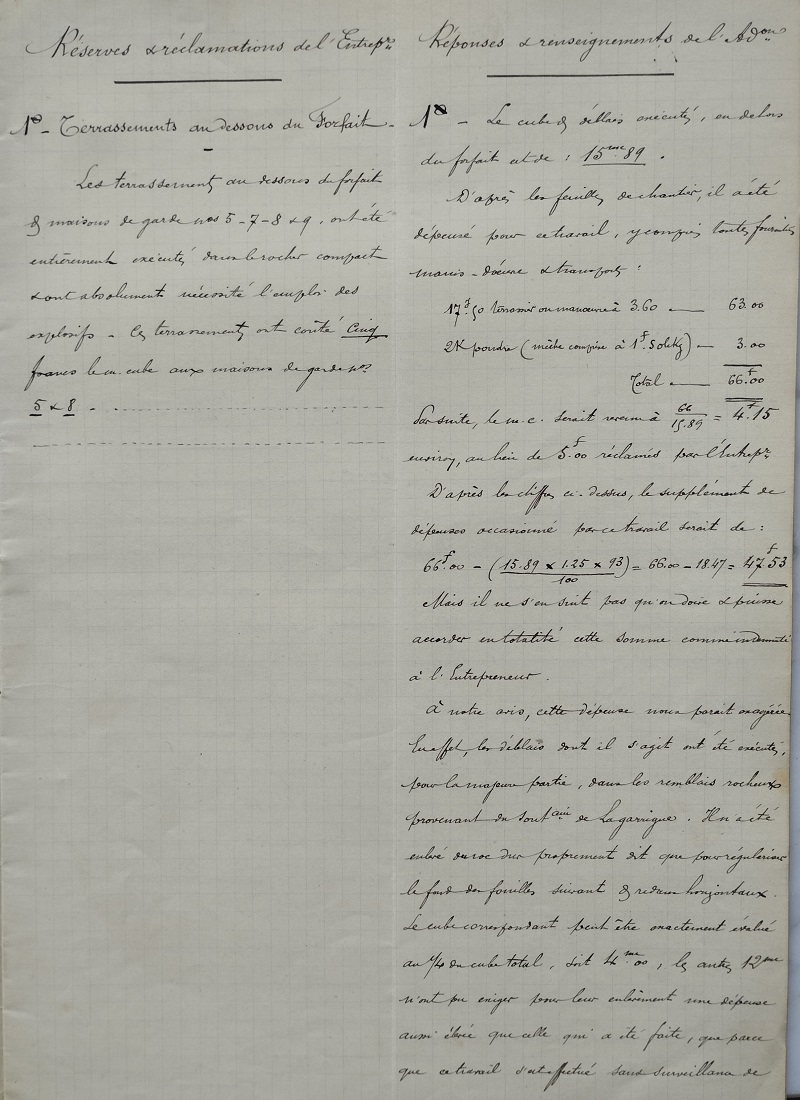 Réserves & réclamations de l'Entrepr
1° - Terrassements au dessous du Forfait -
Les terrassements au dessous du forfait
des maisons de garde nos 5 - 7 - 8 & 9, ont été
entièrement exécutés dans le rocher compact
& ont absolument nécessité l'emploi des
explosifs - Ces terrassements ont coûté Cinq
francs le m. cube aux maisons de garde nos
5 & 8 -
Réponses & renseignements de l'Adon
1° - Le cube des déblais exécutés, en dehors
du forfait est de : 15mc.89.
D'après les feuilles de chantier, il a été
dépensé pour ce travail, y compris toutes fournitures
main-d'œuvre & transports :
17j.50 terrassier ou manœuvre à 3.60 — 63.00
2K poudre (mèche comprise à 1f.50 le kg) — 3.00
Total — 66f.00
Par suite, le m.c. serait revenu à 66/15.89 = 4f.15
environ, au lieu de 5f.00 réclamés par l'Entrepr
D'après les chiffres ci-dessus, le supplément de
dépenses occasionné par ce travail serait de :
66f.00 - (15.89 x 1.25 x 93)/100 = 66.00 - 18.47 = 47f.53
Mais il ne s'en suit pas qu'on doive & puisse
accorder en totalité cette somme comme indemnité
à l'Entrepreneur.
A notre avis, cette dépense nous parait exagérée
En effet, les déblais dont il s'agit ont été exécutés,
pour la majeure partie, dans les remblais rocheux
provenant du souterrain de Lagarrigue. Il n'a été
enlevé du roc dur proprement dit que pour régulariser
le fond des fouilles suivant des redans horizontaux.
Le cube correspondant peut être exactement évalué
au 1/4 du cube total, soit 4mc.00, les autres 12mc
n'ont pu exiger pour leur enlèvement une dépense
aussi élevée que celle qui a été faite, que parce
que ce travail s'est effectué sans surveillance de